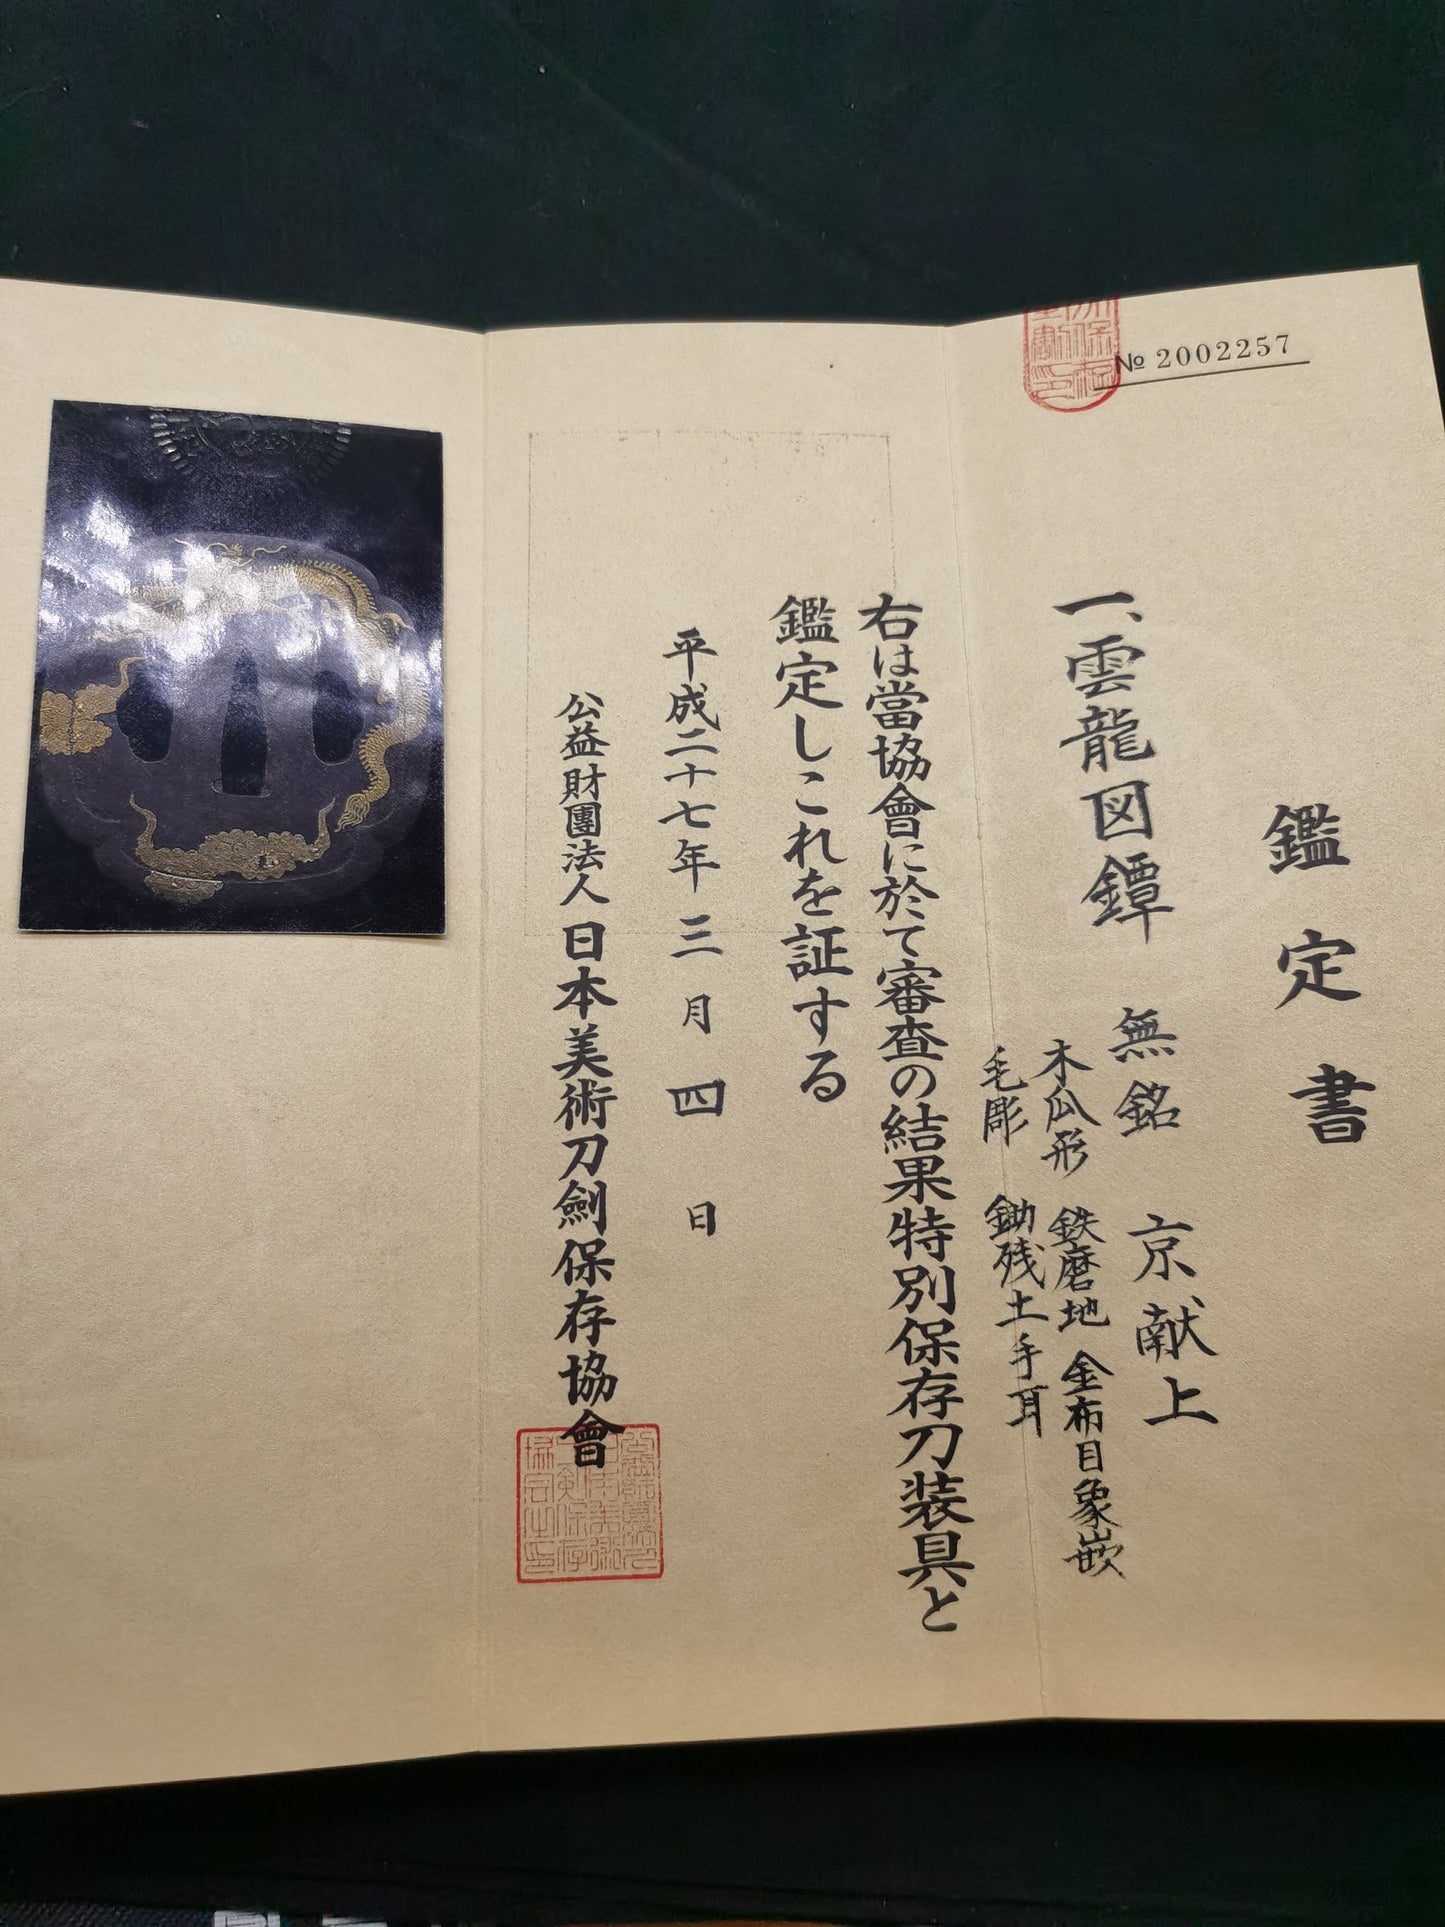 № 2002257
鑑定書
一、雲龍図鐔 無銘 京献上
木瓜形 鉄磨地 金布目象嵌
毛彫 鋤残土手耳
右は當協會に於て審査の結果特別保存刀装具と
鑑定しこれを証する
平成二十七年三月四日
公益財團法人 日本美術刀劍保存協會